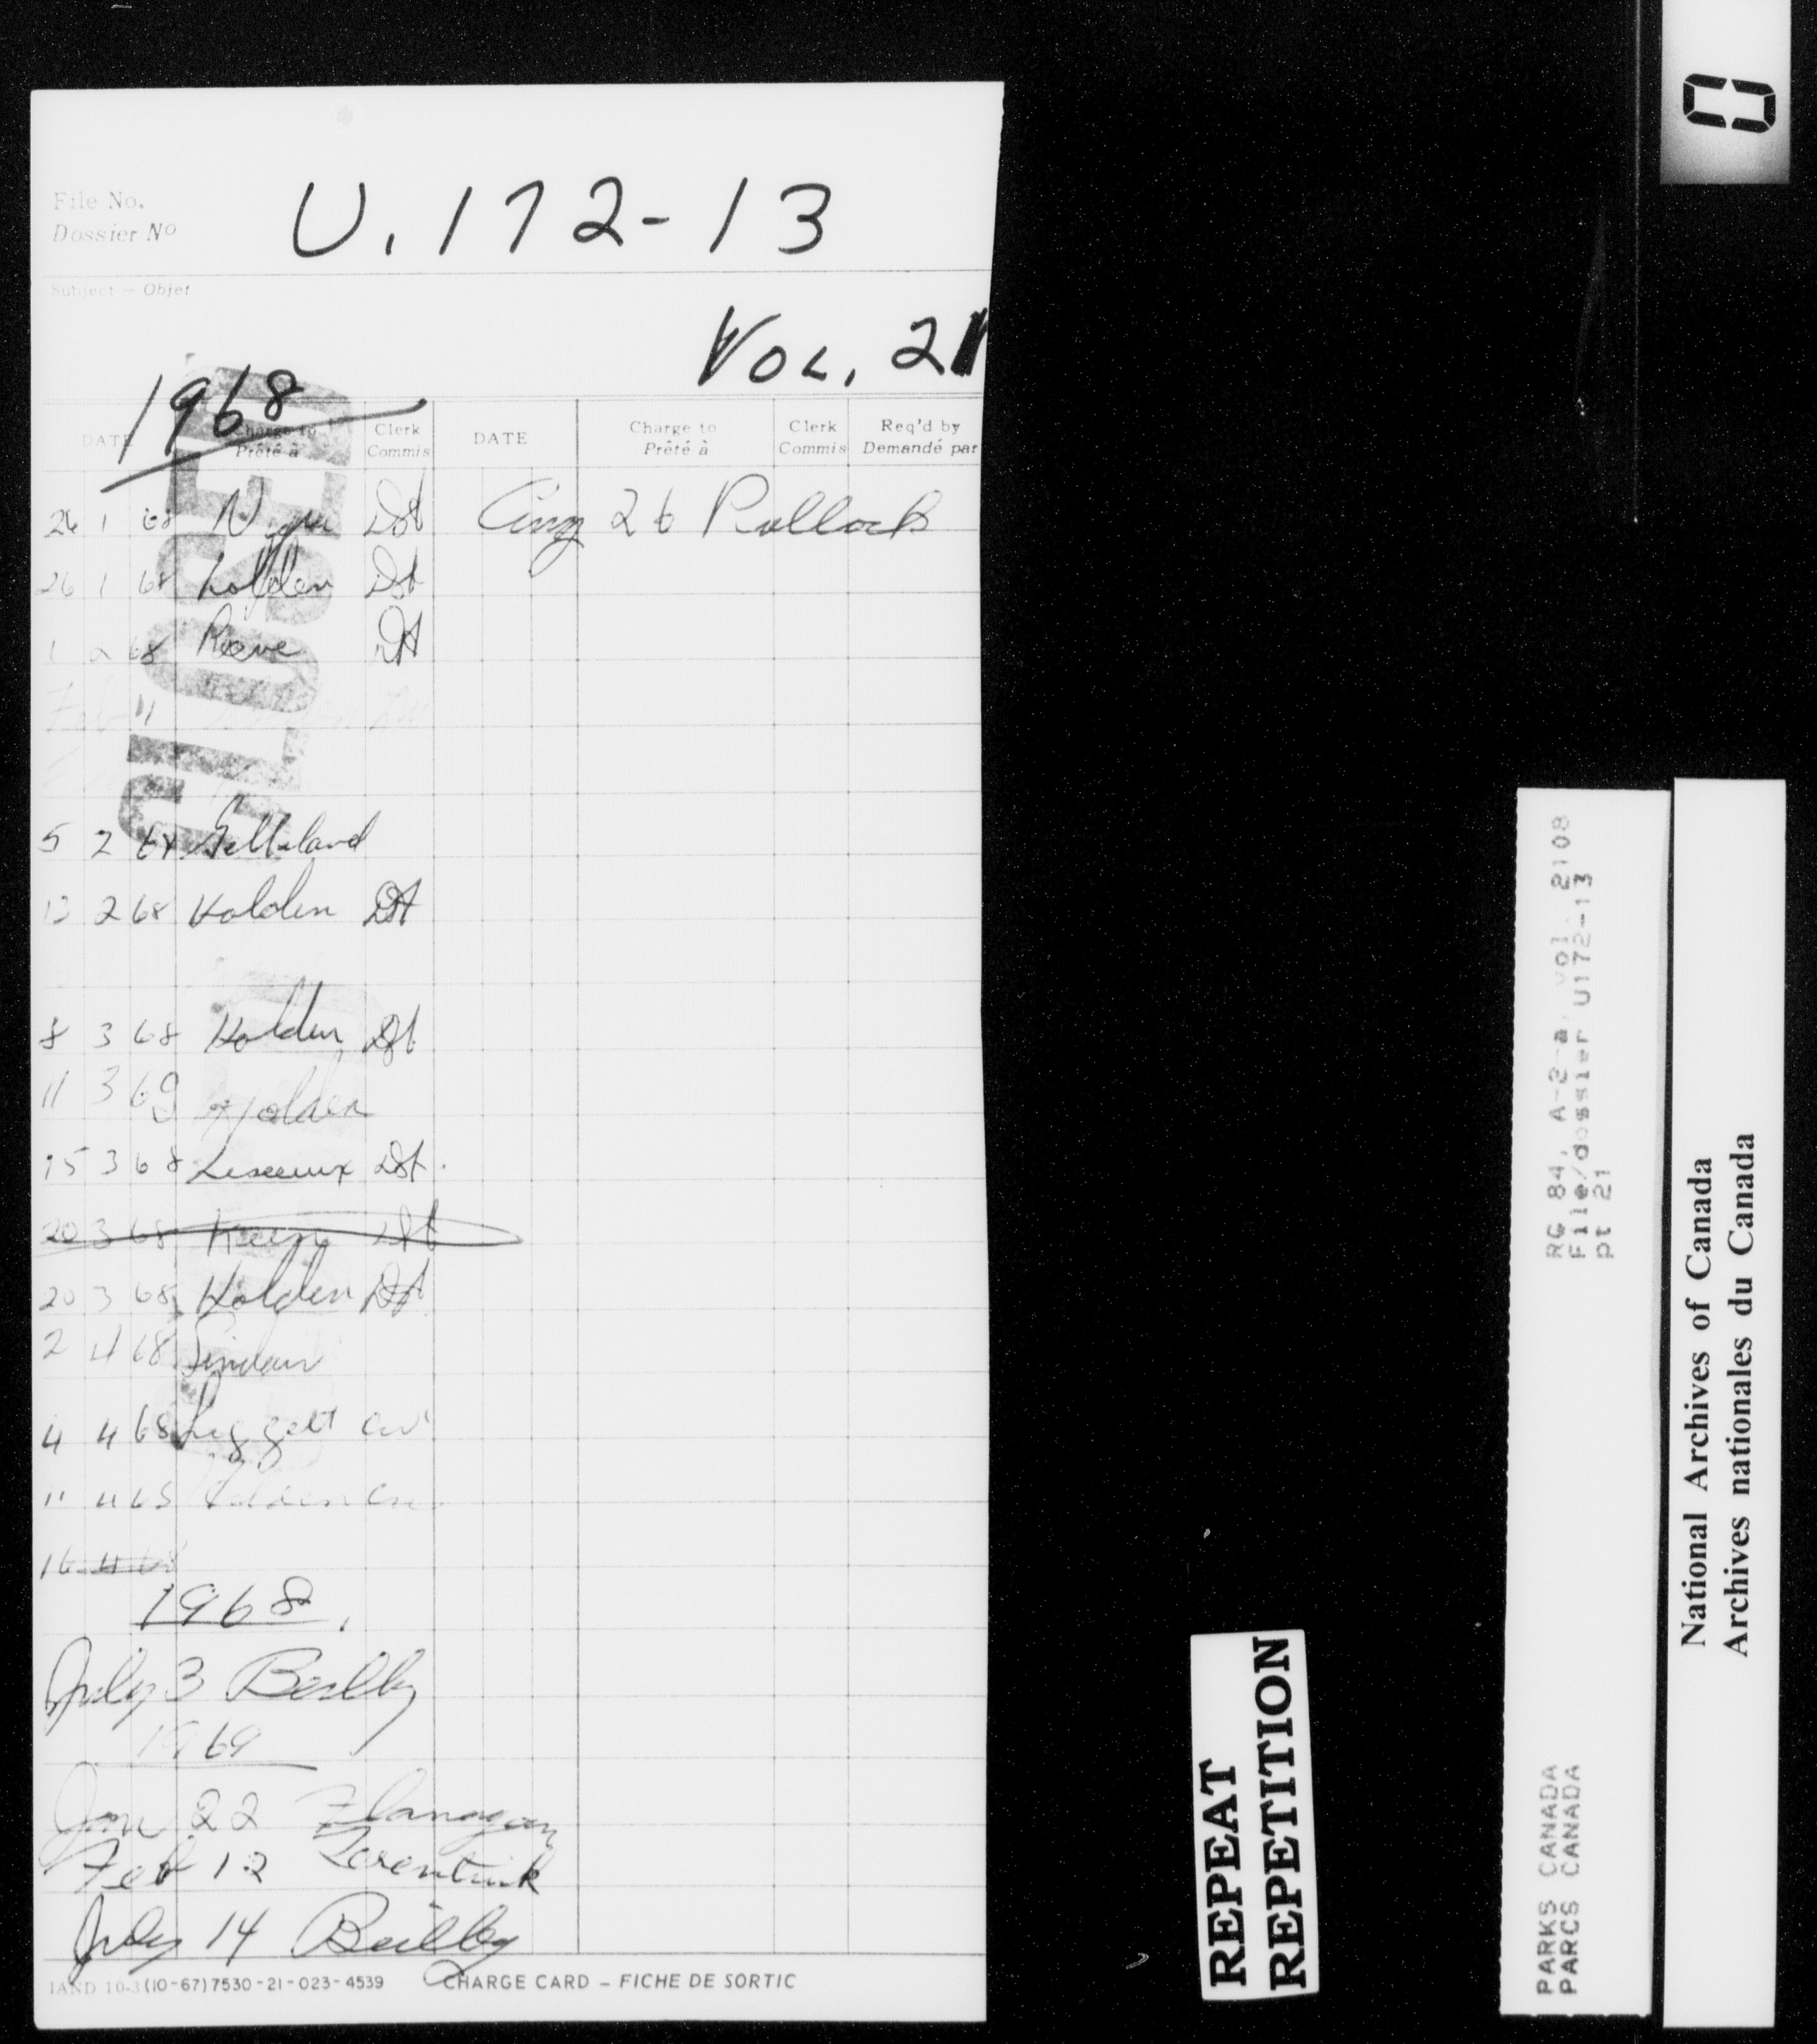 File No.
Dossier No
U. 172-13
Subject - Objet
VOL. 21
1968
CLOSED
DATE Charge to Prêté à Clerk Commis DATE Charge to Prêté à Clerk Commis Req'd by Demandé par
26 1 68 Dst Aug 26 Pollock
26 1 68 Holden Dst
1 2 68 Reeve Dst
Feb
5 2 68
13 2 68 Holden Dst
8 3 68 Holden Dst
11 3 69 Holden
15 3 68 Dst.
20 3 68 Dst
20 3 68 Holden Dst
2 4 68 Sinclair
4 4 68 Leggett
11 4 68 Holden
16 4 68
1968.
July 3 Beilby
1969
Jan 22 Flanagan
Feb 12
July 14 Beilby
IAND 10-3 (10-67) 7530-21-023-4539 CHARGE CARD - FICHE DE SORTIC
REPEAT
REPETITION
RG 84, A-2-a, vol. 2108
File/dossier U172-13
pt 21
PARKS CANADA
PARCS CANADA
National Archives of Canada
Archives nationales du Canada